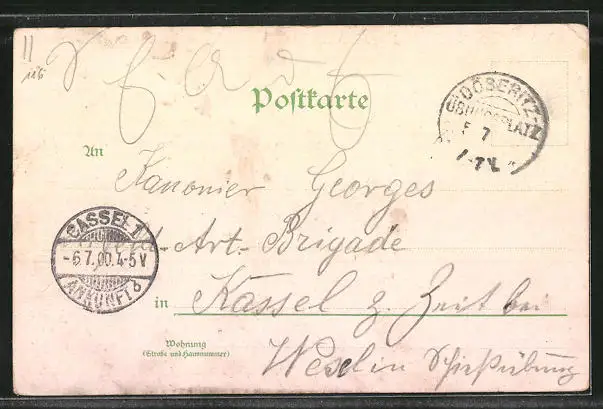 Postkarte
DÖBERITZ-
ÜBUNGSPLATZ
7
An
Kanonier Georges
CASSEL 1
-6.7.00.4-5V
ANKUNFT
Art. Brigade
in Kassel z. Zeit bei
Wohnung
(Straße und Hausnummer)
Wesel in Schießübung